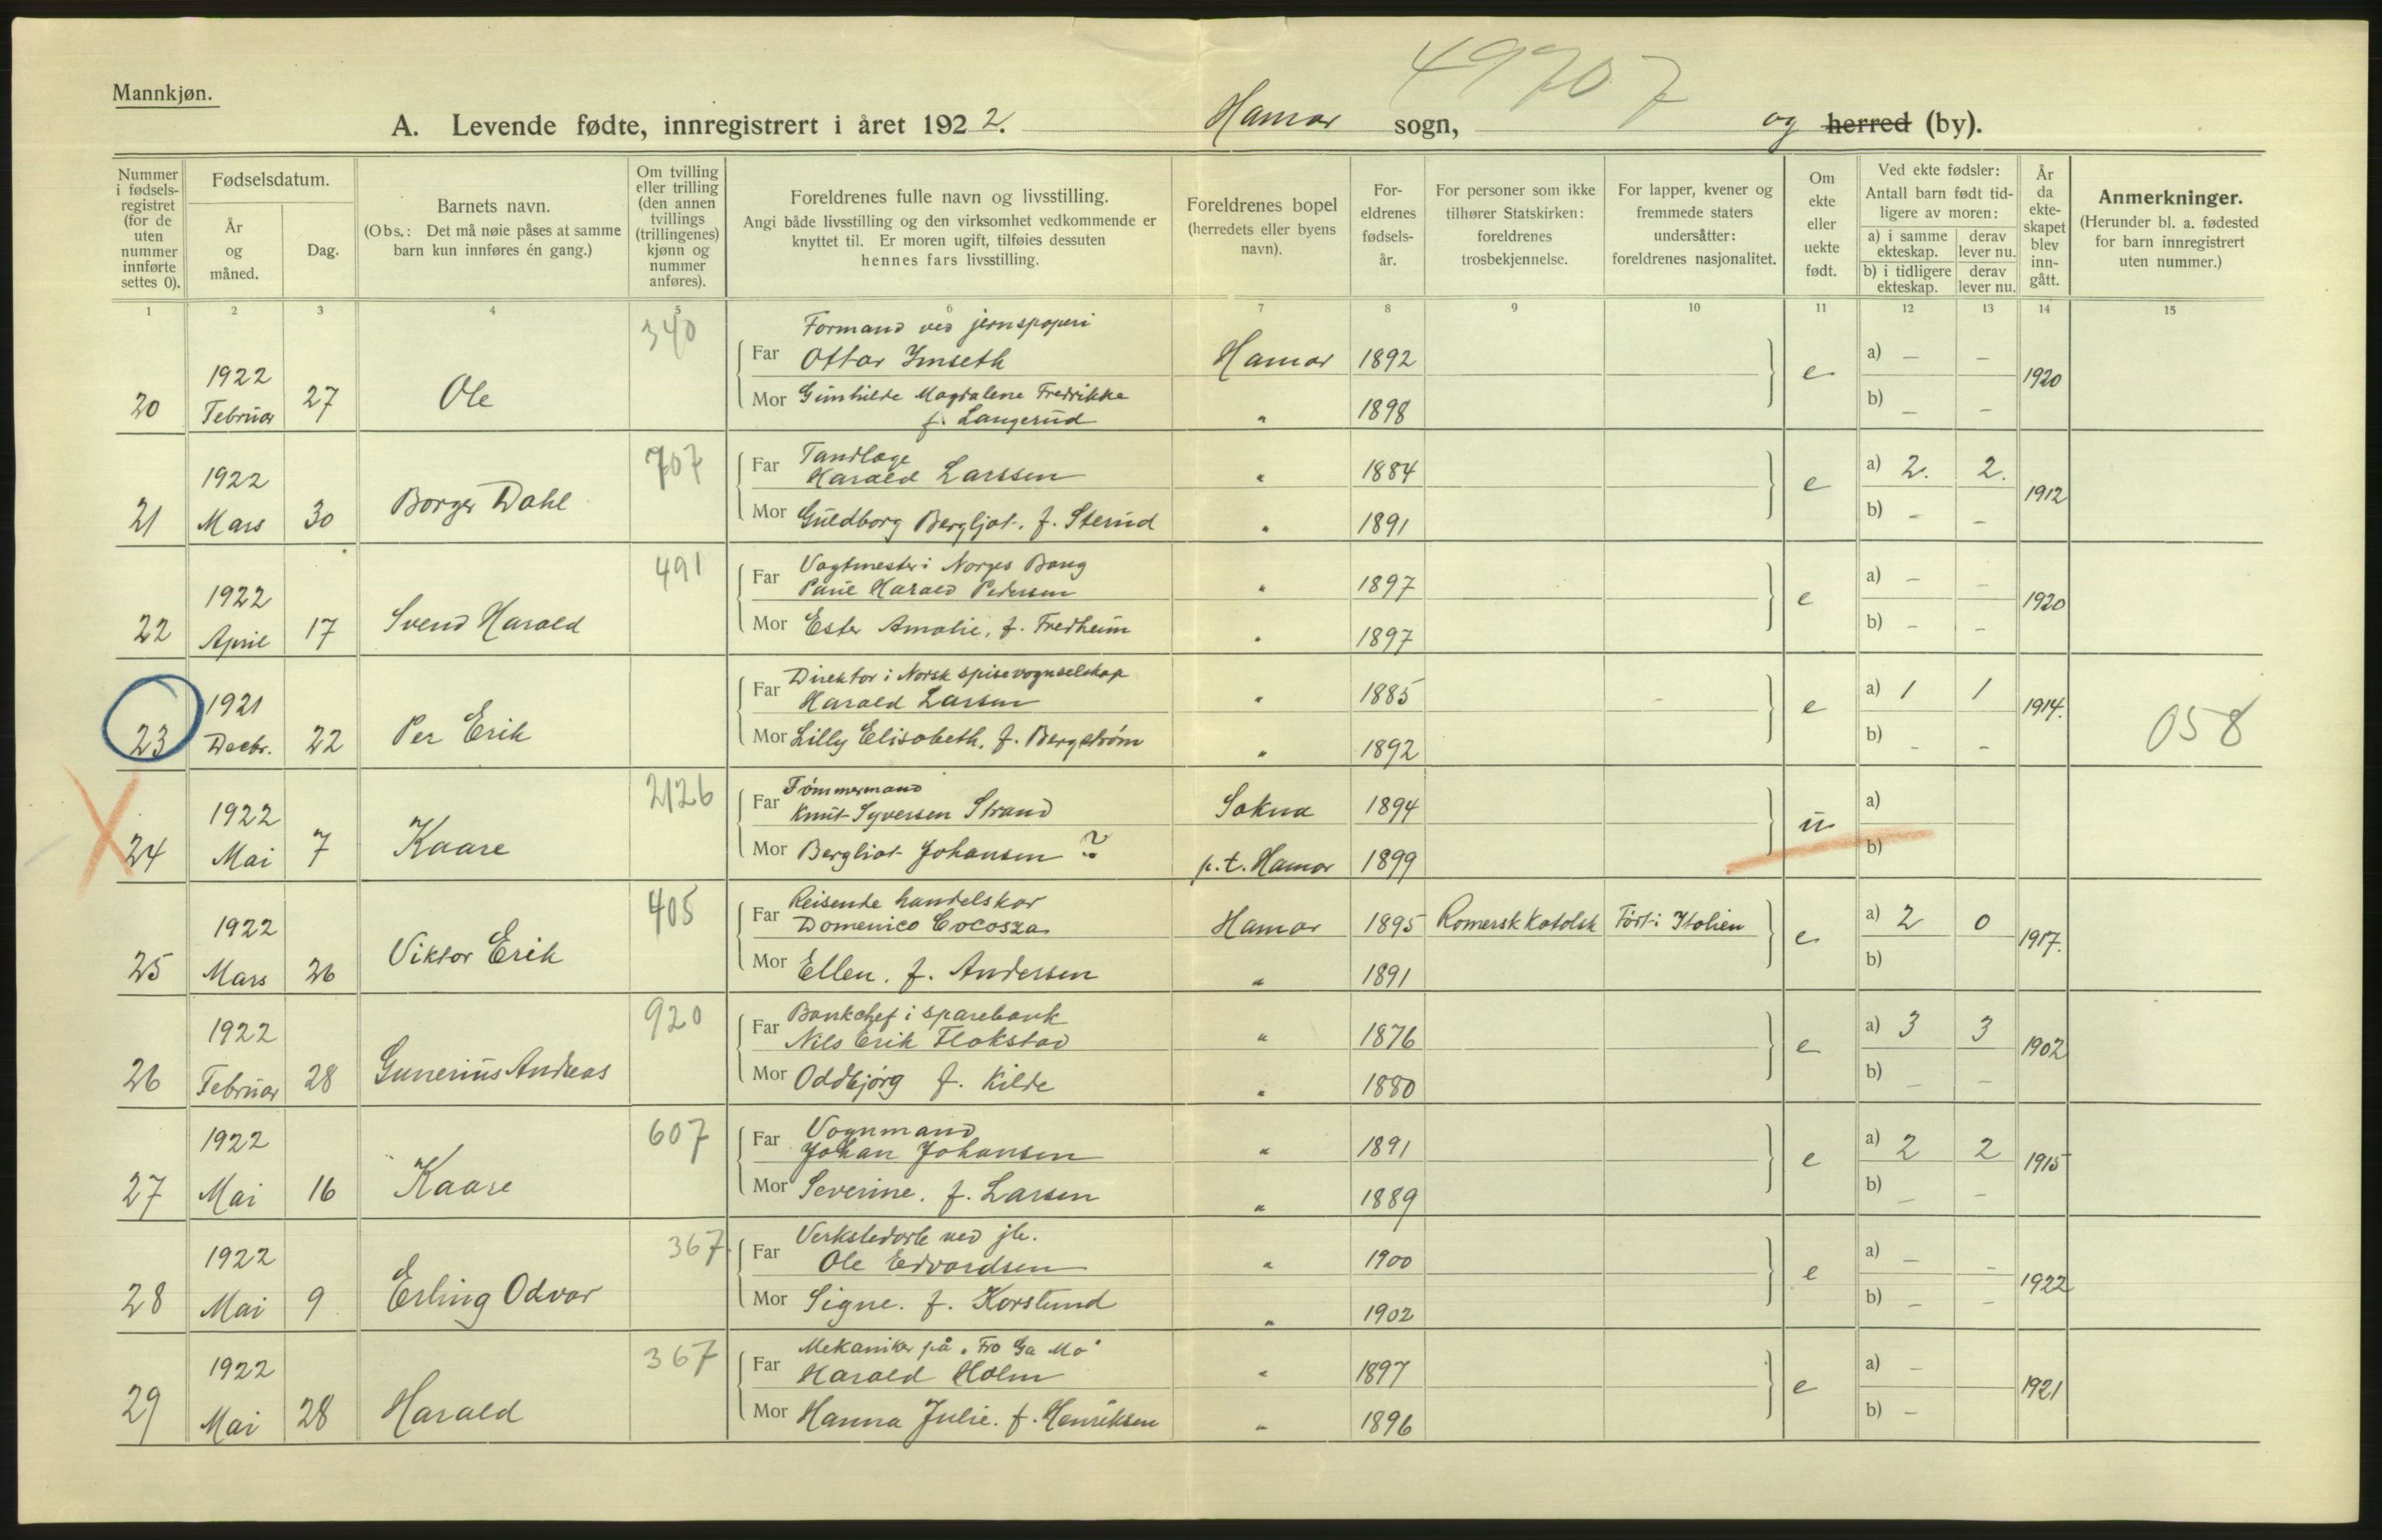 49707
Mannkjøn.
A. Levende fødte, innregistrert i året 1922. Hamar sogn, og herred (by).
Nummer i fødselsregistret (for de uten nummer innførte settes 0).
Fødselsdatum.
År og måned.
Dag.
Barnets navn.
(Obs.: Det må nøie påses at samme barn kun innføres én gang.)
Om tvilling eller trilling (den annen tvillings (trillingenes) kjønn og nummer anføres).
Foreldrenes fulle navn og livsstilling.
Angi både livsstilling og den virksomhet vedkommende er knyttet til. Er moren ugift, tilføies dessuten hennes fars livsstilling.
Foreldrenes bopel (herredets eller byens navn).
Foreldrenes fødselsår.
For personer som ikke tilhører Statskirken: foreldrenes trosbekjennelse.
For lapper, kvener og fremmede staters undersåtter: foreldrenes nasjonalitet.
Om ekte eller uekte født.
Ved ekte fødsler: Antall barn født tidligere av moren:
a) i samme ekteskap. derav lever nu.
b) i tidligere ekteskap. derav lever nu.
År da ekteskapet blev inngått.
Anmerkninger.
(Herunder bl. a. fødested for barn innregistrert uten nummer.)
1 2 3 4 5 6 7 8 9 10 11 12 13 14 15
340 Formand ved
20 1922 Februar 27 Ole
Far Ottar Imseth Hamar 1892 e a) – – 1920
Mor Gunhilde Magdalene Fredrikke f. Langerud " 1898 b) – –
707 Tandlæge
21 1922 Mars 30 Borger Dahl
Far Harald Larssen " 1884 e a) 2. 2. 1912
Mor Guldborg Bergljot. f. Sterud " 1891 b) – –
491 Vagtmester i Norges Bang
22 1922 April 17 Svend Harald
Far Paul Harald Pedersen " 1897 e a) – – 1920
Mor Ester Amalie, f. Fredheim " 1897 b) – –
Direktør i Norsk spisevognselskap
23 1921 Decbr. 22 Per Erik
Far Harald Larsen " 1885 – e a) 1 1 1914. 058
Mor Lilly Elisabeth, f. Bergstrøm " 1892 b) – –
2126 Tømmermand
24 1922 Mai 7 Kaare
Far Knut Syversen Strand Sokna 1894 u a)
Mor Bergliot Johansen ? p.t. Hamar 1899 b)
405 Reisende handelskar
25 1922 Mars 26 Viktor Erik
Far Domenico Cocosza Hamar 1895 Romersk Katolsk Født i Italien e a) 2 0 1917.
Mor Ellen. f. Andersen " 1891 b)
920 Bankchef i sparebank
26 1922 Februar 28 Gunerius Andreas
Far Nils Erik Flakstad " 1876 e a) 3 3 1902
Mor Oddbjørg f. Kilde " 1880 b) – –
607 Vognmand
27 1922 Mai 16 Kaare
Far Johan Johansen " 1891 e a) 2 2 1915
Mor Severine. f. Larsen " 1889 b) – –
367 Verkstedarb ved jb.
28 1922 Mai 9 Erling Odvar
Far Ole Edvardsen " 1900 e a) – – 1922
Mor Signe. f. Korslund " 1902 b) – –
367 Mekaniker på "Fro Ga Mo"
29 1922 Mai 28 Harald
Far Harald Holm " 1897 e a) – 1921
Mor Hanna Julie. f. Henriksen " 1896 b) –